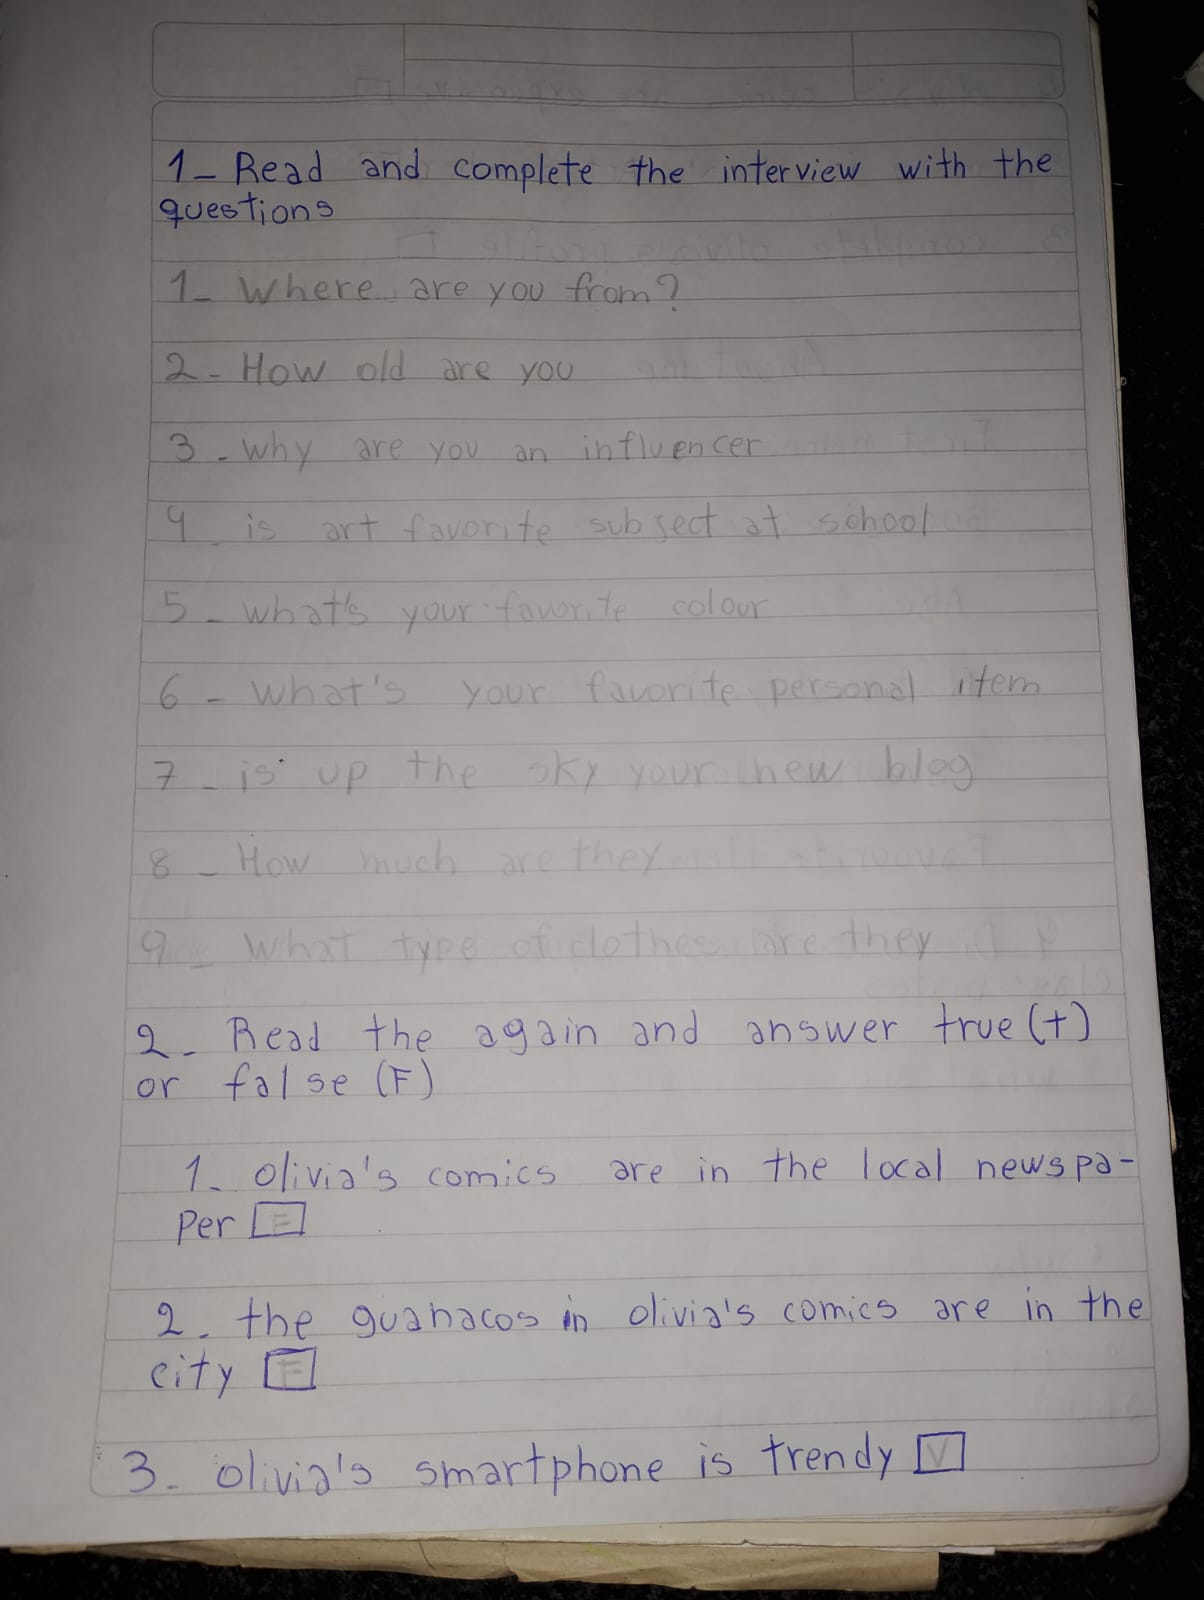 1- Read and complete the interview with the
questions
1- Where are you from?
2- How old are you
3- why are you an influencer
4- is art favorite subject at school
5- what's your favorite colour
6- what's your favorite personal item
7- is up the sky your new blog
8- How much are they
9- What type of clothes are they
2- Read the again and answer true (t)
or false (F)
1. olivia's comics are in the local newspa-
per F
2. the guanacos in olivia's comics are in the
city F
3. olivia's smartphone is trendy V